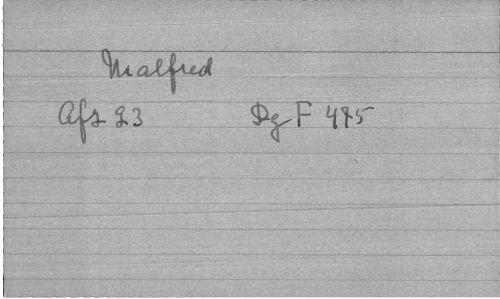 Malfred
Afs 23 DgF 485